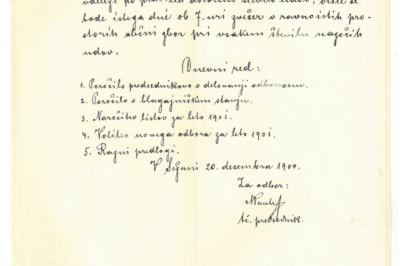 bode istega dné ob 7. uri zvečer v ravnoistih pro-
storih občni zbor pri vsakem številu navzočih
udov.
Dnevni red:
1. Poročilo predsednikovo o delovanji odborovem.
2. Poročilo o blagajniškem stanju.
3. Naročitev listov za leto 1901.
4. Volitev novega odbora za leto 1901.
5. Razni predlogi.
V Sežani 20. decembra 1900.
Za odbor:
t. č. predsednik.